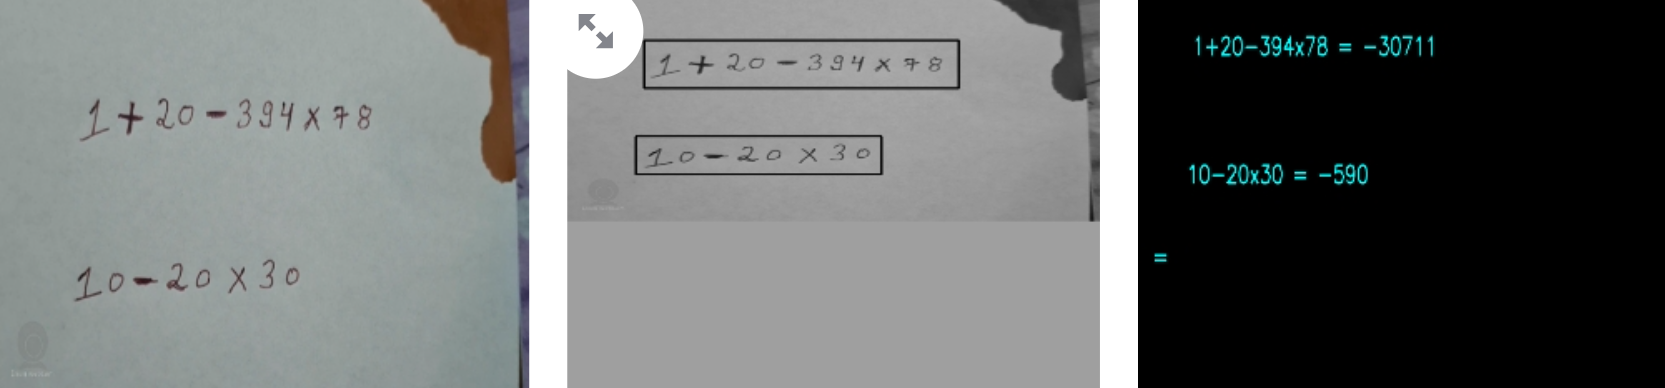 1+20-394x78
10-20x30
1+20-394x78
10-20x30
1+20-394x78 = -30711
10-20x30 = -590
=